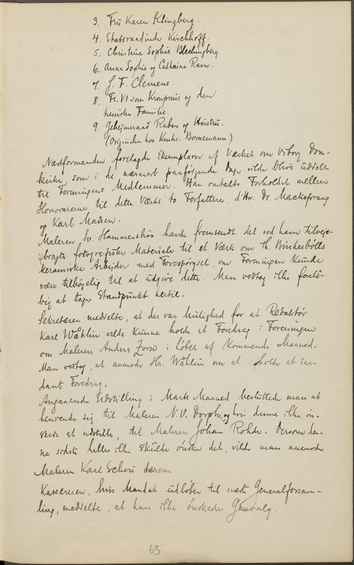 3. Fru Karen Klingberg.
4. Etatsraadinde Kirchhoff.
5. Christine Sophie Blechingberg.
6. Anna Sophie og Cathrine Ravn.
7. J. F. Clemens.
8. Fr. VI som Kronprins og den
kgl. Familie.
9. Geheimraad og Hustru.
Næstformanden forelagde Exemplarer af Værket om Viborg Dom-
kirke, som i de nærmest paafølgende Dage vilde blive uddelt
til Foreningens Medlemmer. Han omtalte Forholdet mellem
Honorarerne til dette Værks to Forfattere, d'Hrr. Dr. Mackeprang
og Karl Madsen.
Maleren Sv. Hammershøi havde fremsendt det ved ham tilveje-
bragte fotografiske Materiale til et Værk om Th. Bindesbølls
keramiske Arbejder med Forespørgsel om Foreningen kunde
være tilbøjelig til at udgive dette. Man vedtog ikke foreløbig
at tage Standpunkt hertil.
Sekretæren meddelte, at der var Mulighed for at Redaktør
Karl Wåhlin vilde kunne holde et Foredrag i Foreningen
om Maleren Anders Zorn i Løbet af kommende Maaned.
Man vedtog at anmode Hr. Wåhlin om at holde et saa-
dant Foredrag.
Angaaende Udstilling i Marts Maaned besluttede man at
henvende sig til Maleren N. V. Dorph og hvis denne ikke øn-
skede at udstille, til Maleren Johan Rohde. Dersom den-
ne heller ikke skulde ønske det, vilde man anmode
Maleren Karl Schou derom.
Kassereren, hvis Mandat udløber til næste Generalforsam-
ling, meddelte, at han ikke ønskede Genvalg.
63